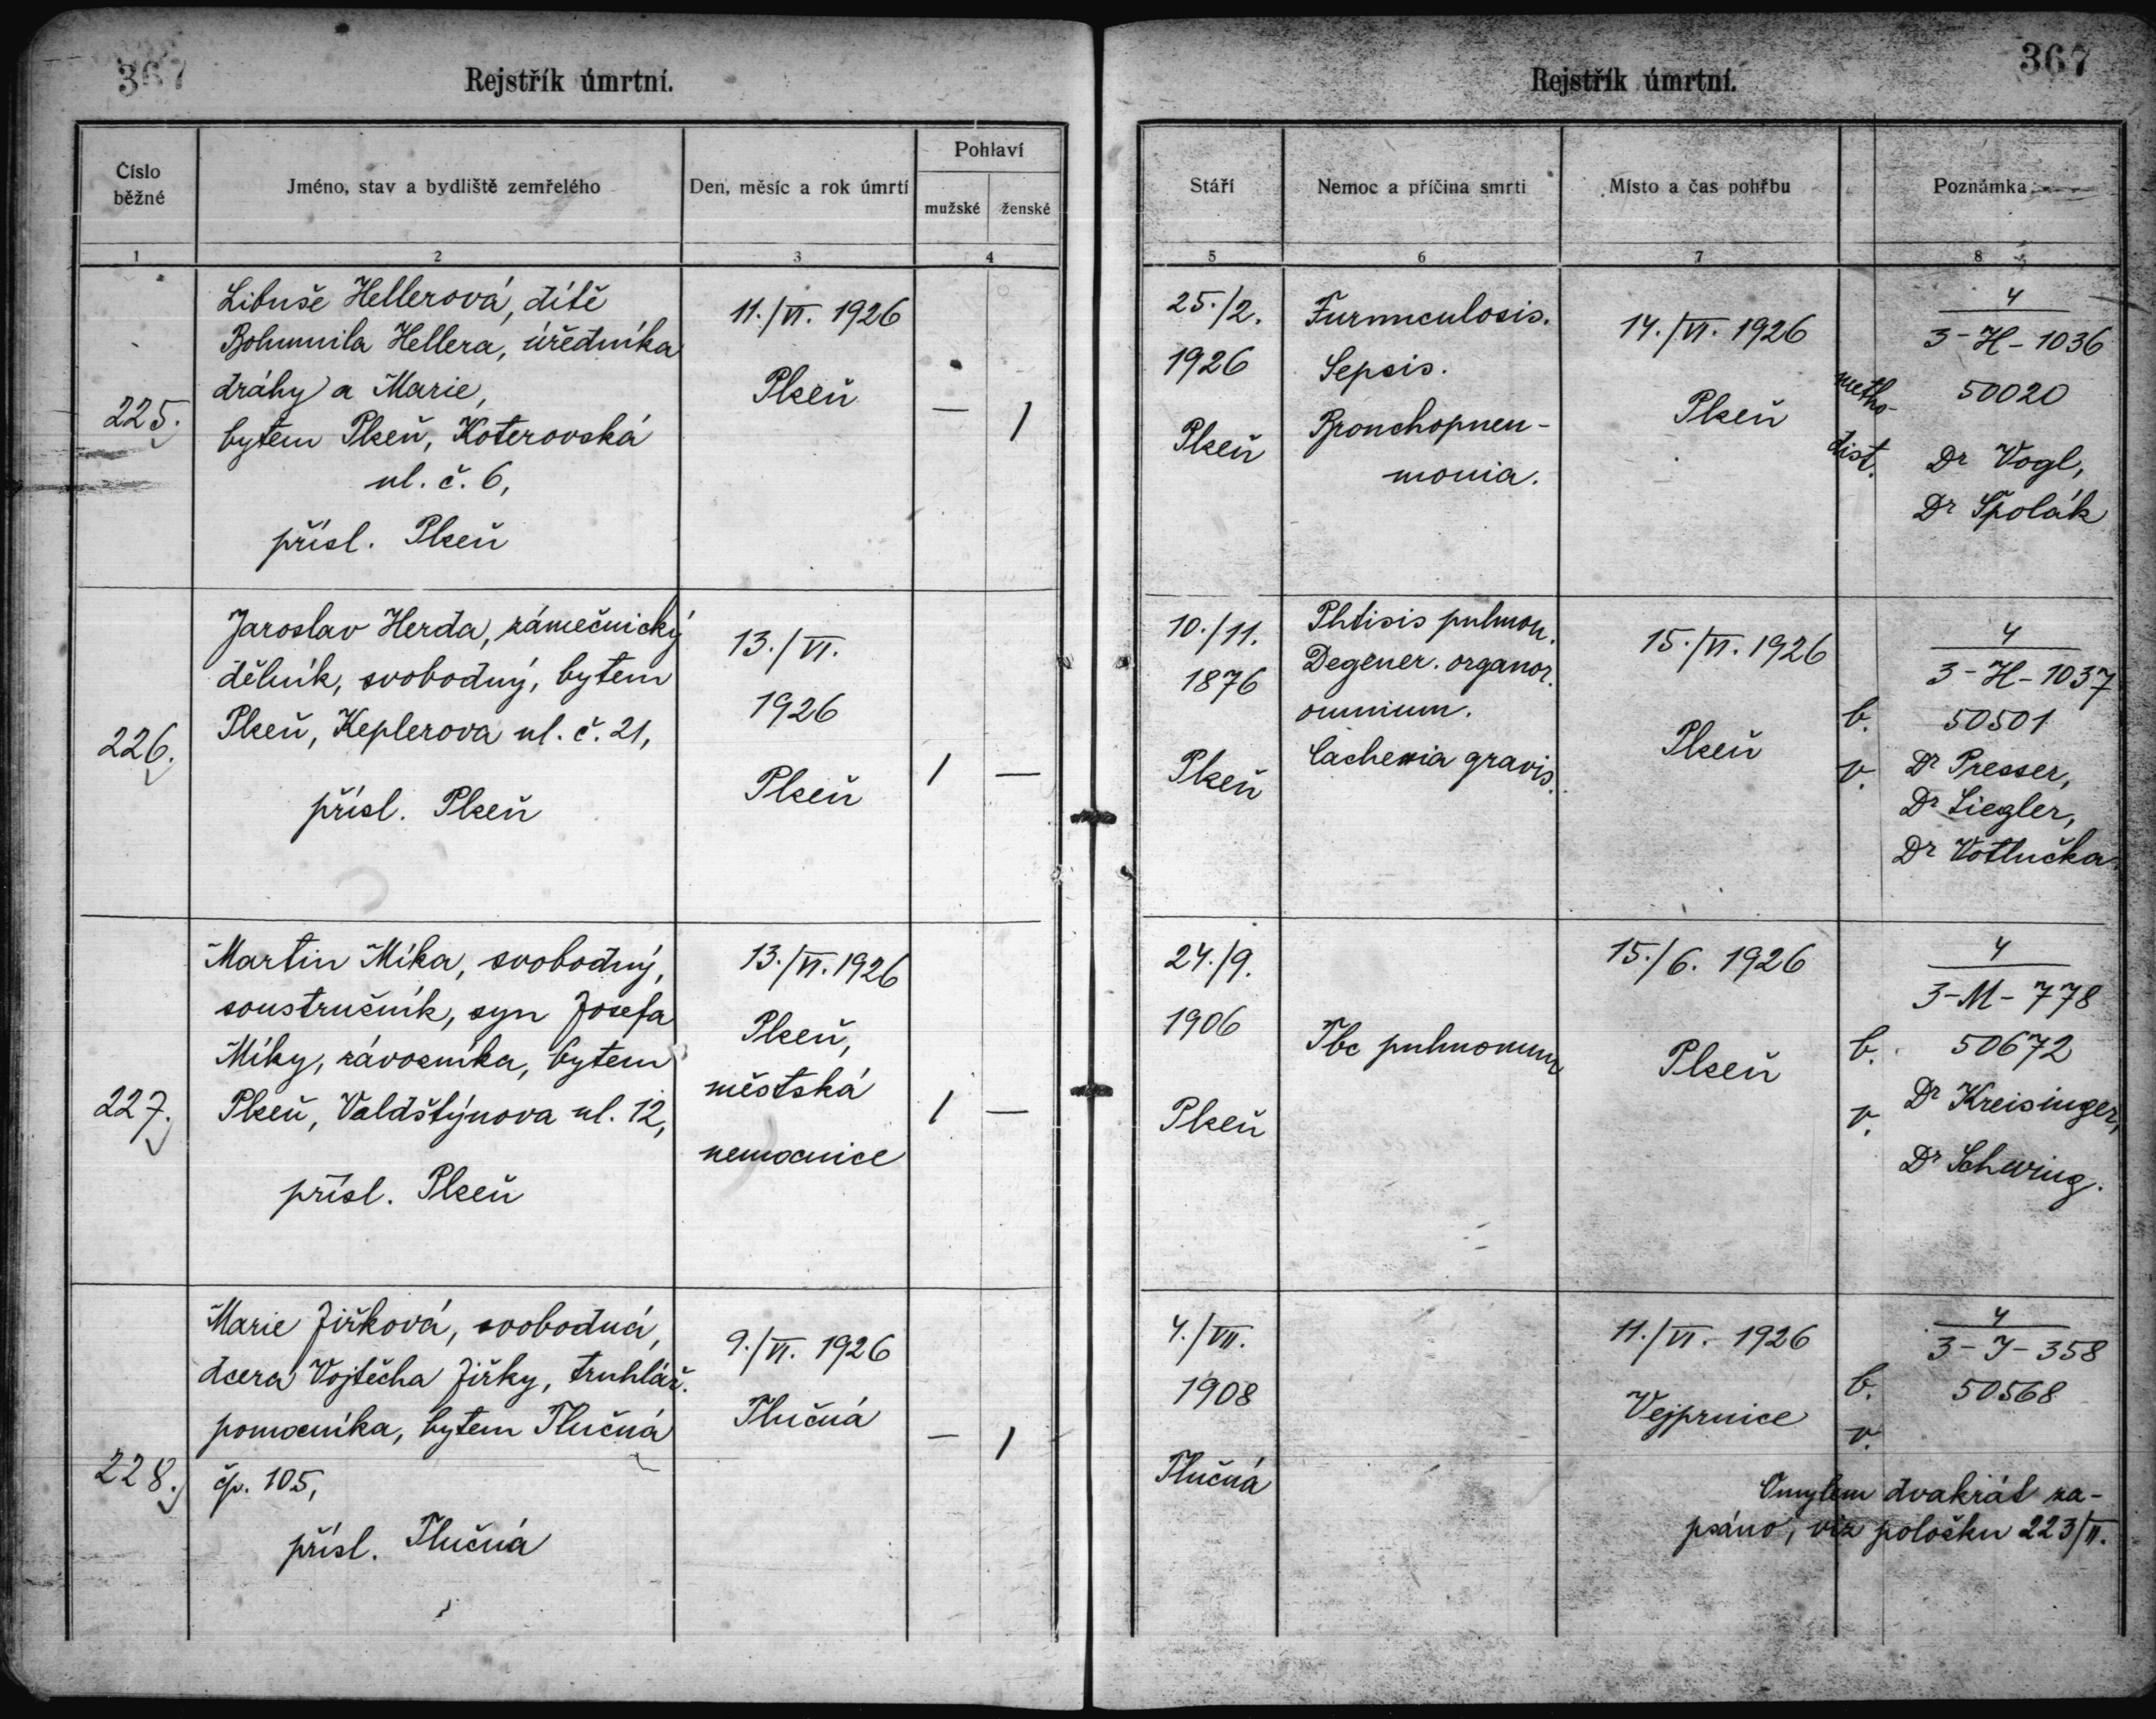 367
Rejstřík úmrtní.
Číslo
běžné
Jméno, stav a bydliště zemřelého
Den, měsíc a rok úmrtí
Pohlaví
mužské
ženské
1
2
3
4
Libuše Hellerová, dítě
Bohumila Hellera, úředníka
dráhy a Marie,
225.
bytem Plzeň, Koterovská
ul. č. 6,
přísl. Plzeň
11./VI. 1926
Plzeň
— 1
Jaroslav Herda, zámečnický
dělník, svobodný, bytem
226.
Plzeň, Keplerova ul. č. 21,
přísl. Plzeň
13./VI.
1926
Plzeň
1 —
Martin Míka, svobodný,
soustružník, syn Josefa
Míky, závozníka, bytem
227.
Plzeň, Valdštýnova ul. 12,
přísl. Plzeň
13./VI. 1926
Plzeň,
městská
nemocnice
1 —
Marie Jiřková, svobodná,
dcera Vojtěcha Jiřky, truhlář.
pomocníka, bytem Tlučná
228.
čp. 105,
přísl. Tlučná
9./VI. 1926
Tlučná
— 1
367
Rejstřík úmrtní.
Stáří
Nemoc a příčina smrti
Místo a čas pohřbu
Poznámka
5
6
7
8
25./2.
1926
Plzeň
Furunculosis.
Sepsis.
Bronchopneu-
monia.
14./VI. 1926
Plzeň
metho-
dist.
4
3-H-1036
50020
Dr Vogl,
Dr Špolák
10./11.
1876
Plzeň
Phtisis pulmon.
Degener. organor.
omnium.
Cachexia gravis.
15./VI. 1926
Plzeň
b.
v.
4
3-H-1037
50501
Dr Presser,
Dr Liegler,
Dr Votlučka
24./9.
1906
Plzeň
Tbc pulmonum
15./6. 1926
Plzeň
b.
v.
4
3-M-778
50672
Dr Kreisinger,
Dr Schwing.
4./VII.
1908
Tlučná
11./VI. 1926
Vejprnice
b.
v.
4
3-J-358
50568
Omylem dvakrát za-
psáno, viz položku 223/II.